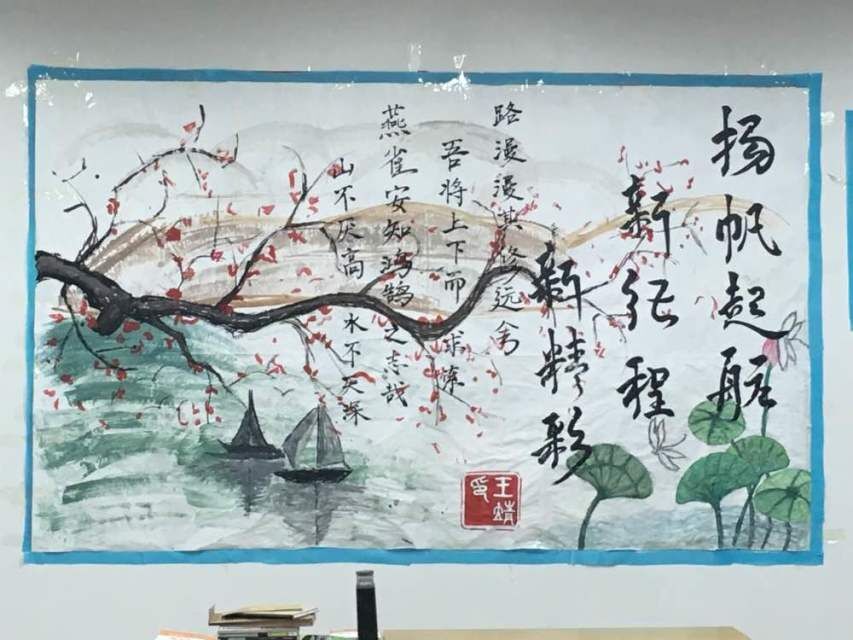 扬帆起航
新征程
新精彩
路漫漫其修远兮
吾将上下而求索
燕雀安知鸿鹄之志哉
山不厌高 水不厌深
王婧印